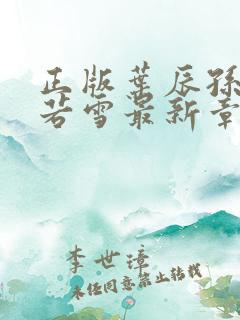 正版葉辰孫
若雪最新章
李世璋
未经同意禁止转载